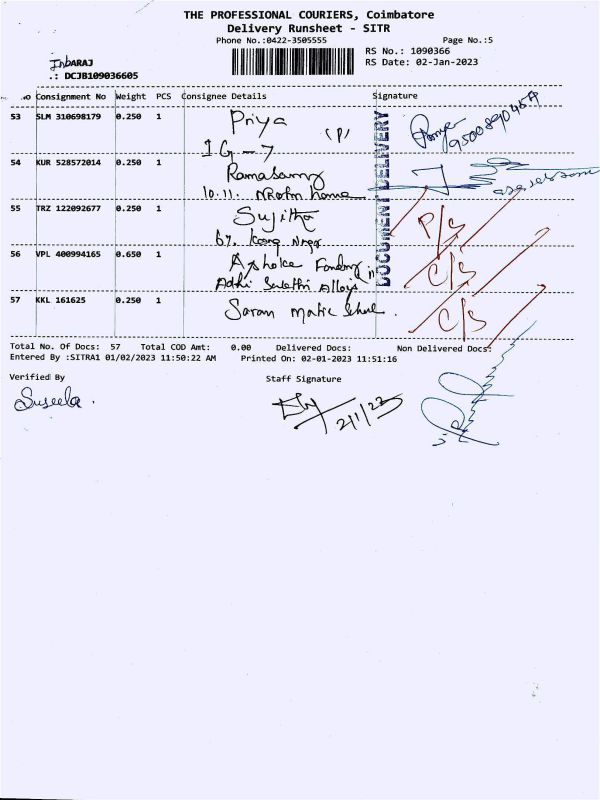 THE PROFESSIONAL COURIERS, Coimbatore
Delivery Runsheet - SITR
Phone No.:0422-3505555
Page No.:5
RS No.: 1090366
InbARAJ
RS Date: 02-Jan-2023
.: DCJB109036605
No Consignment No Weight PCS Consignee Details Signature
53 SLM 310698179 0.250 1 Priya (P)
IG-7
54 KUR 528572014 0.250 1 Ramasamy
10.11. home
55 TRZ 122092677 0.250 1 Sujitha P/S
67. Nagar
56 VPL 400994165 0.650 1 Ashoke C/S
Adhi Alloys
57 KKL 161625 0.250 1 Saran Matic C/S
DOCUMENT DELIVERY
Total No. Of Docs: 57 Total COD Amt: 0.00 Delivered Docs: Non Delivered Docs:
Entered By :SITRA1 01/02/2023 11:50:22 AM Printed On: 02-01-2023 11:51:16
Verified By Staff Signature
Suseela. 2/1/23